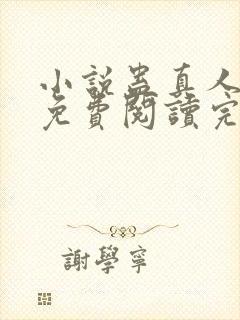 小説蛊真人
免費閱讀完
謝學寧